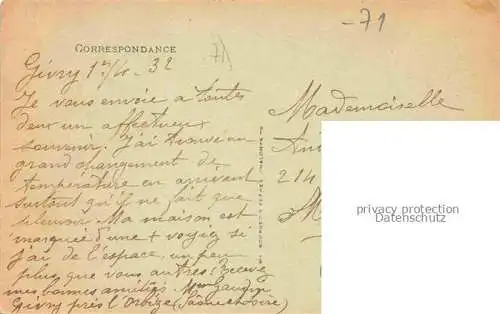 -71
CORRESPONDANCE
71
Givry 17/4 - 32
Je vous envoie a toutes
deux un affectueux
souvenir. J'ai trouvé un
grand changement de
température en arrivant
surtout qu'il ne fait que
pleuvoir. Ma maison est
marquée d'une + voyez si
j'ai de l'espace, un peu
plus que vous autres! Recevez
mes bonnes amitiés Mme Gaudin
Givry près l'Orbize (Saône et Loire)
Mademoiselle
214
M
privacy protection
Datenschutz